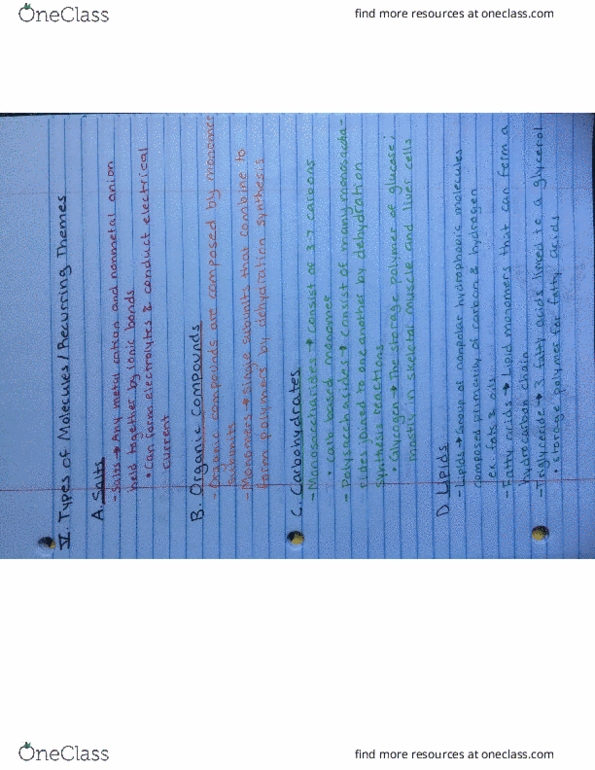 OneClass
find more resources at oneclass.com
V. Types of Molecules/Recurring Themes
A. Salts
- Salts → Any metal cation and nonmetal anion
held together by ionic bonds
• Can form electrolytes & conduct electrical
current
B. Organic Compounds
- Organic compounds are composed by monomer
subunits
- Monomers → single subunits that combine to
form polymers by dehydration synthesis
C. Carbohydrates
- Monosaccharides → consist of 3-7 carbons
• carb based monomer
- Polysaccharides → Consist of many monosaccha-
rides joined to one another by dehydration
synthesis reactions
• Glycogen → the storage polymer of glucose;
mostly in skeletal muscle and liver cells
D. Lipids
- Lipids → Group of nonpolar hydrophobic molecules
composed primarily of carbon & hydrogen
ex. fats & oils
- Fatty acids → Lipid monomers that can form a
hydrocarbon chain
- Triglyceride → 3 fatty acids linked to a glycerol
• storage polymer for fatty acids
OneClass
find more resources at oneclass.com